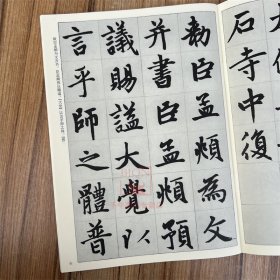 石寺中復
勅臣孟頫為文
并書臣孟頫預
議賜謚大覺以
言乎師之體普